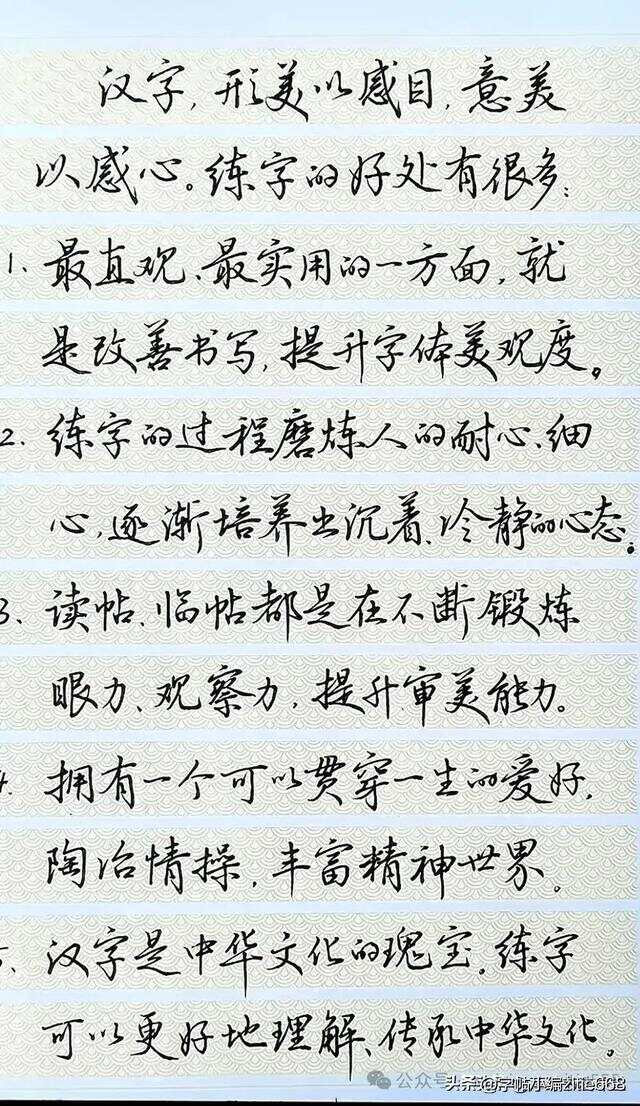 汉字,形美以感目,意美
以感心。练字的好处有很多:
1.最直观、最实用的一方面,就
是改善书写,提升字体美观度。
2.练字的过程磨炼人的耐心、细
心,逐渐培养出沉着、冷静的心态。
3、读帖、临帖都是在不断锻炼
眼力、观察力,提升审美能力。
4.拥有一个可以贯穿一生的爱好,
陶冶情操,丰富精神世界。
5、汉字是中华文化的瑰宝,练字
可以更好地理解、传承中华文化。
公众号
头条@字帖小编